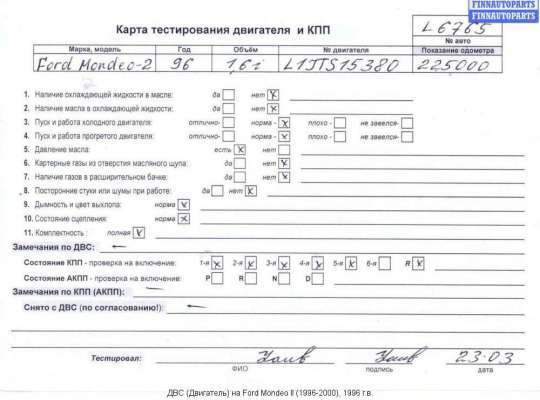 FINNAUTOPARTS
FINNAUTOPARTS
Карта тестирования двигателя и КПП
L6765
№ авто
Марка, модель Год Объём № двигателя Показание одометра
Ford Mondeo-2 96 1,6i L1JTS15380 225000
1. Наличие охлаждающей жидкости в масле: да нет x
2. Наличие масла в охлаждающей жидкости: да нет x
3. Пуск и работа холодного двигателя: отлично- норма - x плохо - не завелся-
4. Пуск и работа прогретого двигателя: отлично- норма - x плохо - не завелся-
5. Давление масла: есть x нет
6. Картерные газы из отверстия масляного щупа: да нет x
7. Наличие газов в расширительном бачке: да нет x
8. Посторонние стуки или шумы при работе: да нет x
9. Дымность и цвет выхлопа: норма x
10. Состояние сцепления: норма x
11. Комплектность : полная x
Замечания по ДВС: —
Состояние КПП - проверка на включение: 1-я x 2-я x 3-я x 4-я x 5-я x 6-я R x
Состояние АКПП - проверка на включение: P R N D
Замечания по КПП (АКПП): —
Снято с ДВС (по согласованию!): —
Тестировал: 23.03
ФИО подпись дата
ДВС (Двигатель) на Ford Mondeo II (1996-2000), 1996 г.в.